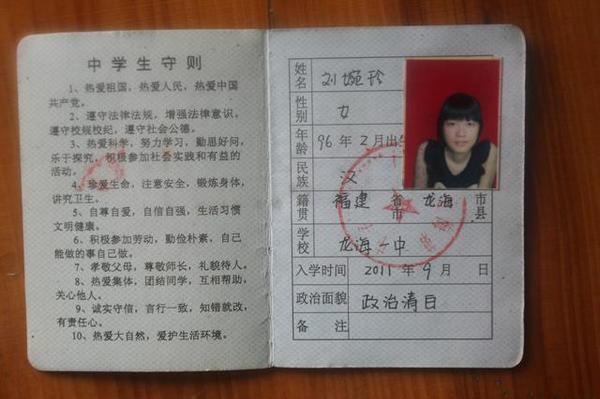 中学生守则
1、热爱祖国，热爱人民，热爱中国
共产党。
2、遵守法律法规，增强法律意识。
遵守校规校纪，遵守社会公德。
3、热爱科学，努力学习，勤思好问，
乐于探究，积极参加社会实践和有益的
活动。
4、珍爱生命，注意安全，锻炼身体，
讲究卫生。
5、自尊自爱，自信自强，生活习惯
文明健康。
6、积极参加劳动，勤俭朴素，自己
能做的事自己做。
7、孝敬父母，尊敬师长，礼貌待人。
8、热爱集体，团结同学，互相帮助，
关心他人。
9、诚实守信，言行一致，知错就改，
有责任心。
10、热爱大自然，爱护生活环境。
姓名 刘婉玲
性别 女
年龄 96年2月出生
民族 汉
籍贯 福建 省市 龙海 市县
学校 龙海一中
入学时间 2011年9月 日
政治面貌 政治清白
备注